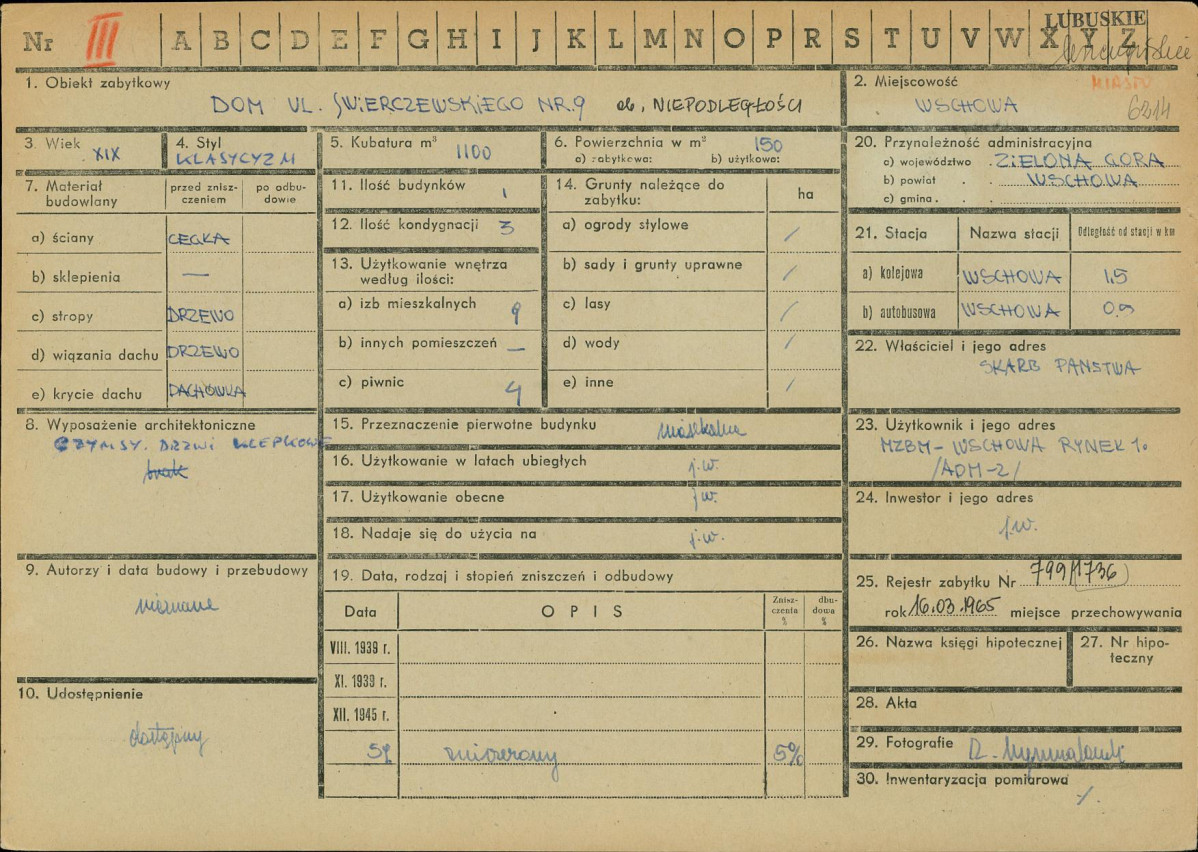 Nr III A B C D E F G H I J K L M N O P R S T U V W X Y Z
LUBUSKIE
1. Obiekt zabytkowy
DOM UL. ŚWIERCZEWSKIEGO NR. 9 ob. NIEPODLEGŁOŚCI
2. Miejscowość
MIASTO
WSCHOWA 6214
3. Wiek
XIX
4. Styl
KLASYCYZM
5. Kubatura m³
1100
6. Powierzchnia w m² 150
a) zabytkowa: b) użytkowa:
20. Przynależność administracyjna
a) województwo ZIELONA GÓRA
b) powiat WSCHOWA
c) gmina
7. Materiał budowlany
przed zniszczeniem
po odbudowie
a) ściany CEGŁA
b) sklepienia —
c) stropy DRZEWO
d) wiązania dachu DRZEWO
e) krycie dachu DACHÓWKA
11. Ilość budynków 1
12. Ilość kondygnacji 3
13. Użytkowanie wnętrza
według ilości:
a) izb mieszkalnych 9
b) innych pomieszczeń —
c) piwnic 4
14. Grunty należące do
zabytku:
ha
a) ogrody stylowe /
b) sady i grunty uprawne /
c) lasy /
d) wody /
e) inne /
21. Stacja Nazwa stacji Odległość od stacji w km
a) kolejowa WSCHOWA 1,5
b) autobusowa WSCHOWA 0,9
22. Właściciel i jego adres
SKARB PAŃSTWA
8. Wyposażenie architektoniczne
GZYMSY. DRZWI KLEPKOWE
brak
15. Przeznaczenie pierwotne budynku mieszkalne
16. Użytkowanie w latach ubiegłych j.w.
17. Użytkowanie obecne j.w.
18. Nadaje się do użycia na j.w.
23. Użytkownik i jego adres
MZBM - WSCHOWA RYNEK 1.
/ADM-2/
24. Inwestor i jego adres
j.w.
9. Autorzy i data budowy i przebudowy
nieznane
10. Udostępnienie
dostępny
19. Data, rodzaj i stopień zniszczeń i odbudowy
Data OPIS Zniszczenia % dbudowa %
VIII. 1939 r.
XI. 1939 r.
XII. 1945 r.
59 5%
25. Rejestr zabytku Nr 799 (1736)
rok 16.03.1965 miejsce przechowywania
26. Nazwa księgi hipotecznej
27. Nr hipoteczny
28. Akta
29. Fotografie
30. Inwentaryzacja pomiarowa